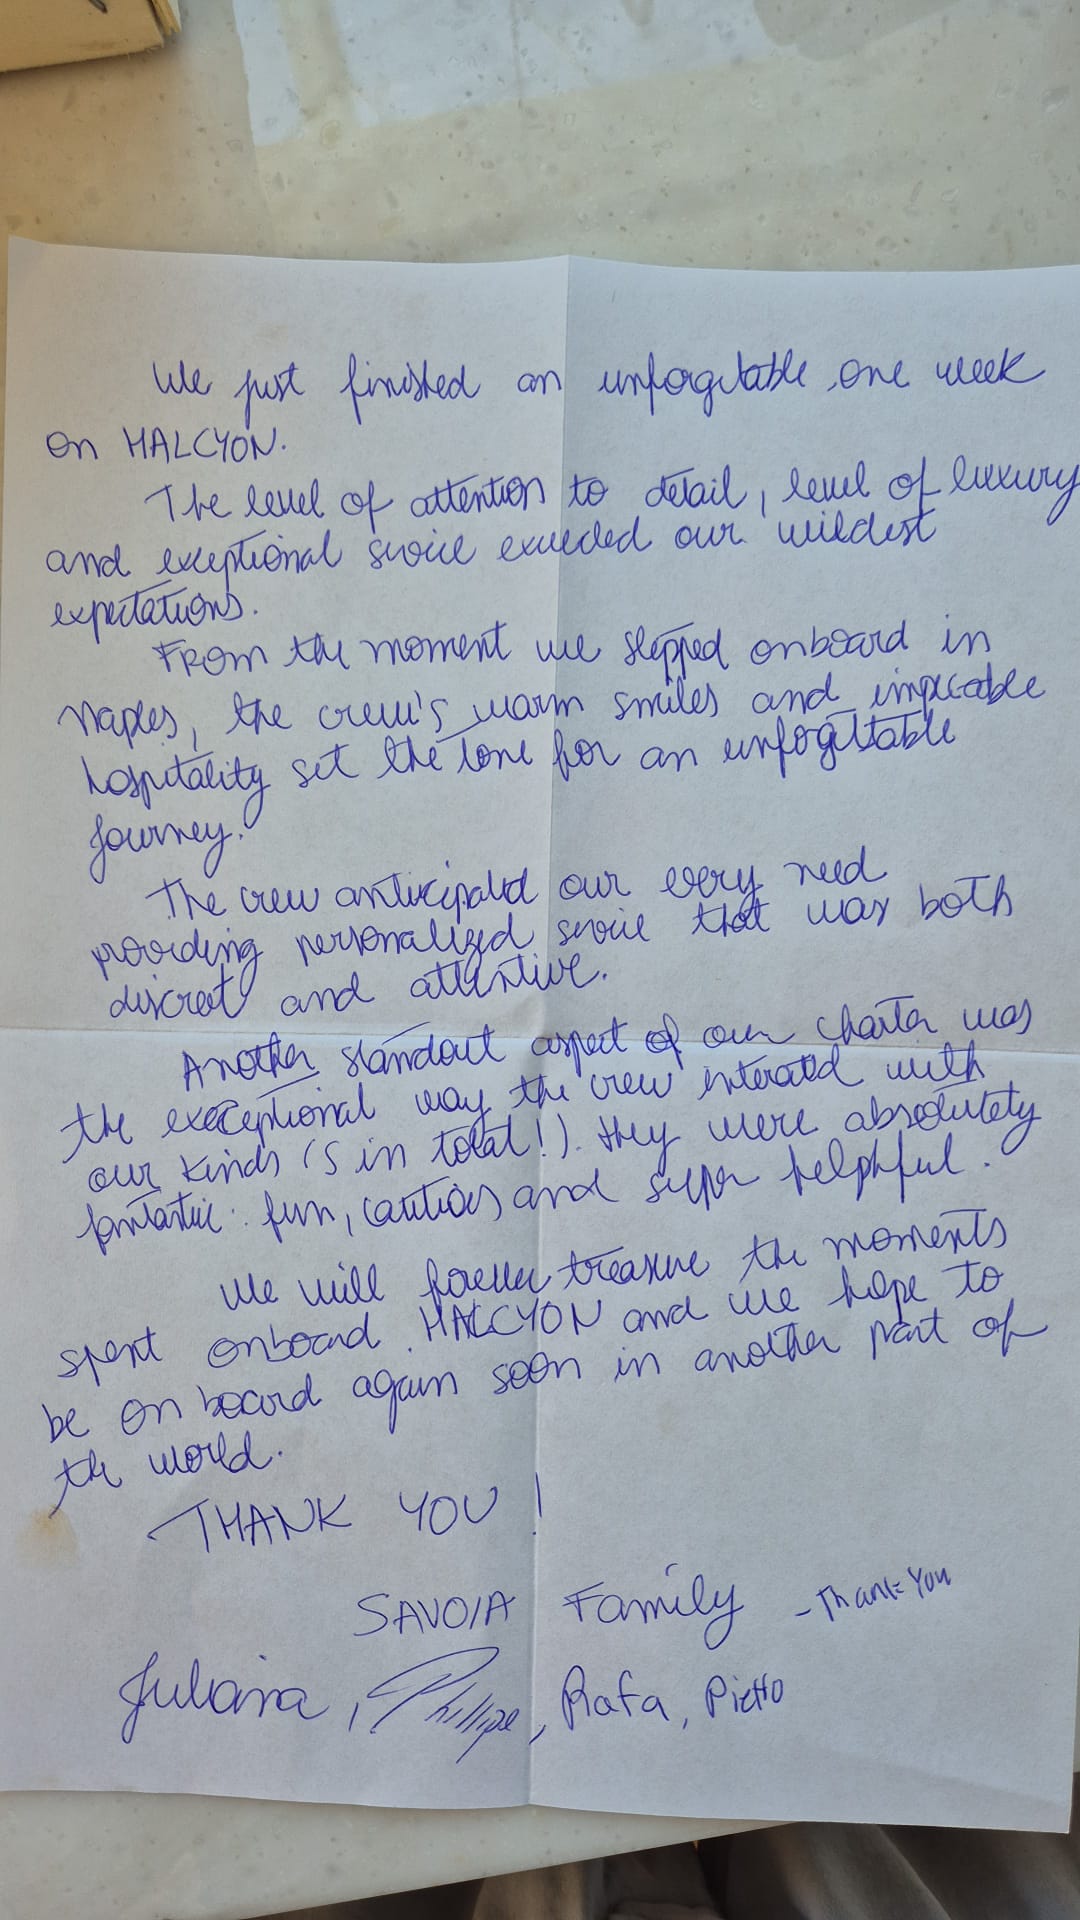 We just finished an unforgetable one week
on HALCYON.
The level of attention to detail, level of luxury
and exceptional service exceeded our wildest
expectations.
From the moment we stepped onboard in
Naples, the crew's warm smiles and impecable
hospitality set the tone for an unfogettable
journey.
The crew anticipated our every need
providing personalized service that was both
discreet and attentive.
Another standout aspect of our charter was
the execeptional way the crew interated with
our kinds (5 in total!). they were absolutely
fantastic: fun, and super helphful.
We will forever treasure the moments
spent onboard HALCYON and we hope to
be on board again soon in another part of
the world.
THANK YOU!
SAVOIA Family - Thank You
Juliana, Phillipe, Rafa, Pietto